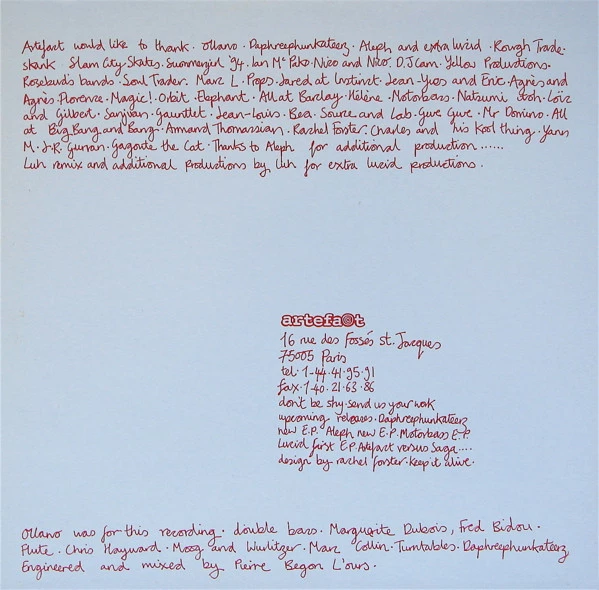 Artefact would like to thank · Ollano · Daphreephunkateerz · Aleph and extra lucid · Rough Trade ·
skank Slam City Skates. Summergirl '94. Ian Mc Pako. Nico and Nico. D.J Cam. Yellow Productions.
Rosebud's bands. Soul Trader. Marc L. Pops. Jared at Instinct. Jean-Yves and Eric. Agnès and
Agnès. Florence. Magic!. Orbit. Elephant. All at Barclay. Hélène. Motorbass. Natsumi Itoh. Loïc
and Gilbert. Sanjivan. Gauntlet. Jean-Louis. Bea. Source and Lab. Gwe Gwe. Mr Domino. All
at Big Bang and Bang. Armand Thomassian. Rachel Foster. Charles and his Kool thing. Yann
M. J.R. Curran. Gagarite the Cat. Thanks to Aleph for additional production ......
Luh remix and additional productions by Luh for extra lucid productions .
artefa@t
16 rue des Fossés st. Jacques
75005 Paris
tel. 1-44.41.95.91
fax. 1-40.21.63.86
don't be shy. send us your work
upcoming releases. Daphreephunkateerz
new E.P. Aleph new E.P. Motorbass E.P
Lucid first E.P Artefact versus Saga ....
design by rachel forster. keep it alive.
Ollano was for this recording · double bass · Marguerite Dubois, Fred Bidou ·
Flute · Chris Hayward · Moog and Wurlitzer · Marc Collin · Turntables · Daphreephunkateerz
Engineered and mixed by Pierre Begon L'ours ·